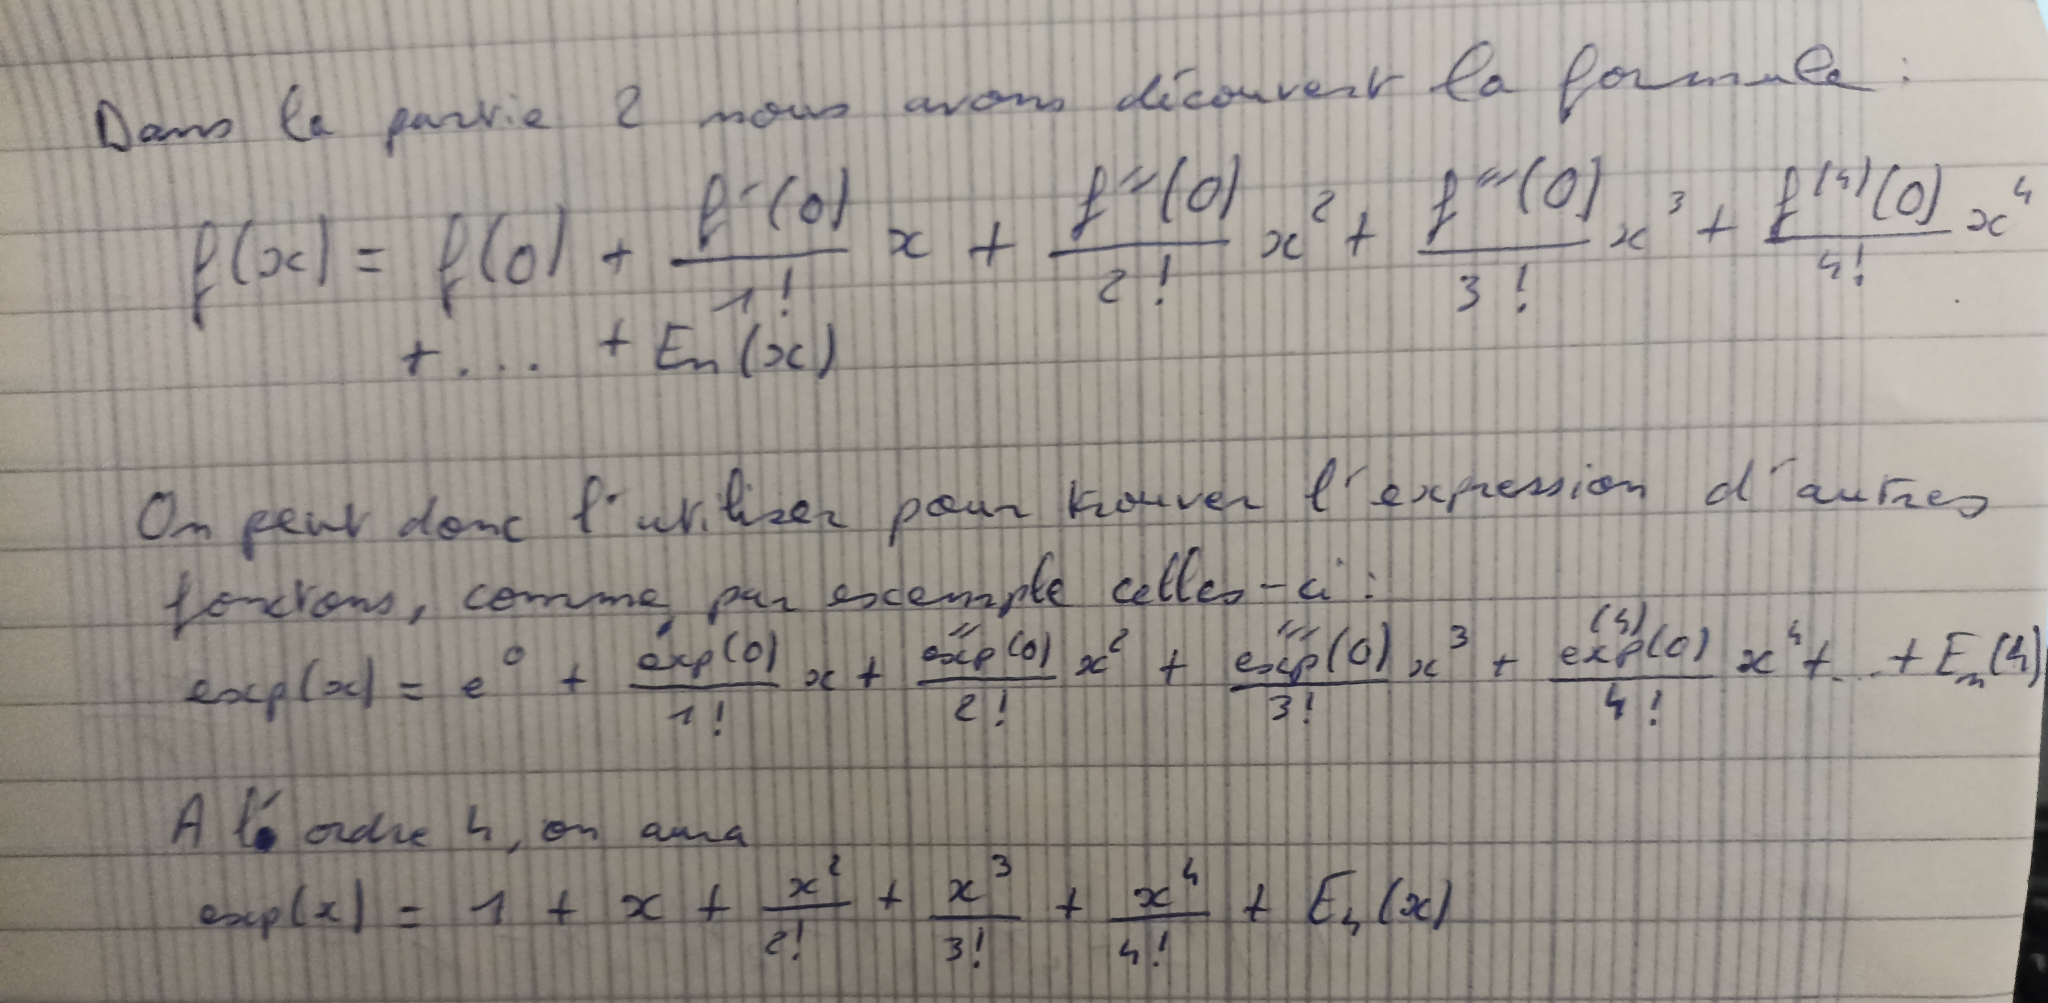 Dans la partie 2 nous avons découvert la formule :
f(x) = f(0) + f'(0)/1! x + f''(0)/2! x² + f'''(0)/3! x³ + f⁽⁴⁾(0)/4! x⁴
+ .... + En(x)
On peut donc l'utiliser pour trouver l'expression d'autres
fonctons, comme par exemple celles-ci :
exp(x) = e⁰ + exp'(0)/1! x + exp''(0)/2! x² + exp'''(0)/3! x³ + exp⁽⁴⁾(0)/4! x⁴ + ... + En(4)
A l'ordre 4, on aura
exp(x) = 1 + x + x²/2! + x³/3! + x⁴/4! + E₄(x)